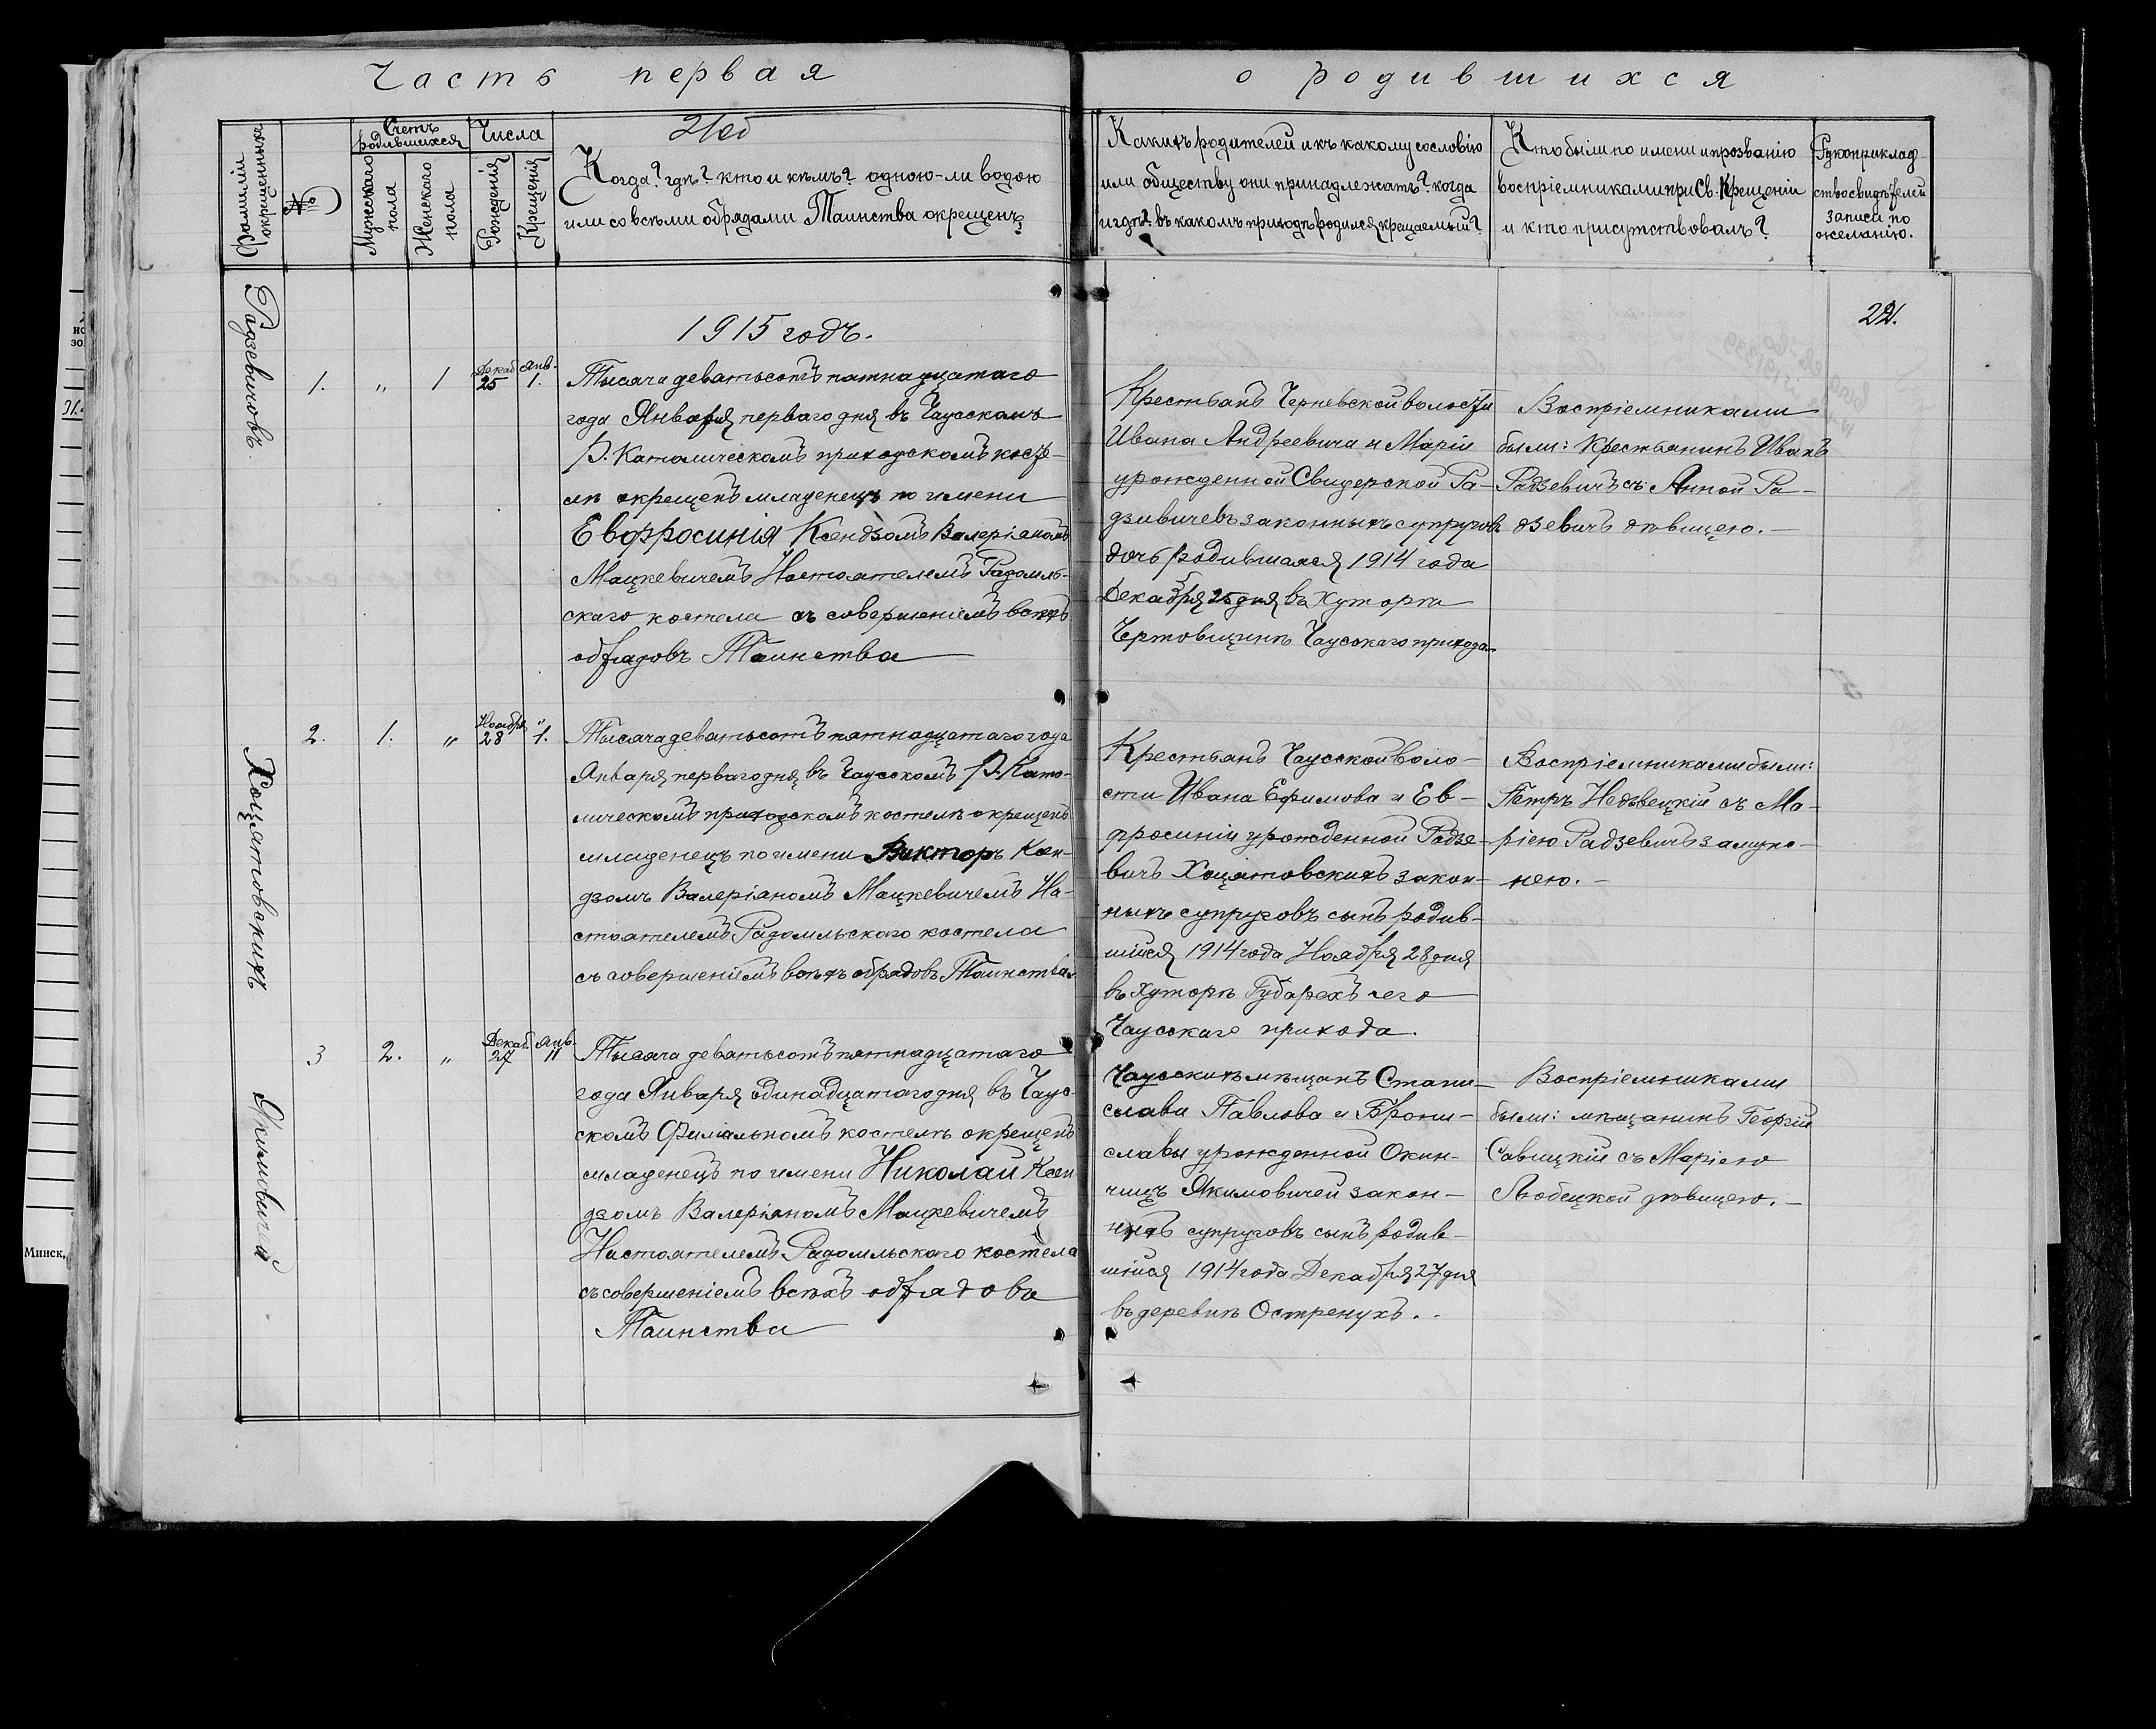 Часть первая
о родившихся
Фамиліи окрещенныхъ
№
Счетъ родившихся
Мужескаго пола
Женскаго пола
Числа
Рожденія
Крещенія
Когда? гдѣ? кто и кѣмъ? одною-ли водою
или со всѣми обрядами Таинства окрещенъ
Какихъ родителей и къ какому сословію
или обществу они принадлежатъ? когда
и гдѣ? въ какомъ приходѣ родился крещаемый?
Кто были по имени и прозванію
воспріемниками при Св. Крещеніи
и кто присутствовалъ?
Рукоприклад-
ство свидѣтелей
записи по
желанію.
22.
1915 годъ.
Радзевичовъ.
1.
"
1
Декаб. 25
Янв. 1.
Тысяча девятьсотъ пятнадцатаго
года Января перваго дня въ Чаусскомъ
Р. Католическомъ приходскомъ косте-
лѣ окрещенъ младенецъ по имени
Евфросинія Ксендзомъ Валеріаномъ
Мацкевичемъ Настоятелемъ Радомль-
скаго костела съ совершеніемъ всѣхъ
обрядовъ Таинства
Крестьянъ Черневской волости
Ивана Андреевича и Маріи
урожденной Свидерской Ра-
дзивичевъ законныхъ супруговъ
дочь родившаяся 1914 года
Декабря 25 дня въ хуторѣ
Чертовщинѣ Чаусскаго прихода.
Воспріемниками
были: Крестьянинъ Иванъ
Радзевичъ съ Анной Ра-
дзевичъ дѣвицею.
Хоцятовскихъ
2.
1.
"
Ноября 28
" 1.
Тысяча девятьсотъ пятнадцатаго года
Января перваго дня въ Чаусскомъ Р. Като-
лическомъ приходскомъ костелѣ окрещенъ
младенецъ по имени Викторъ Ксен-
дзомъ Валеріаномъ Мацкевичемъ На-
стоятелемъ Радомльскаго костела
съ совершеніемъ всѣхъ обрядовъ Таинства.
Крестьянъ Чаусской воло-
сти Ивана Ефимова и Ев-
фросиніи урожденной Радзе-
вичъ Хоцятовскихъ закон-
ныхъ супруговъ сынъ родив-
шійся 1914 года Ноября 28 дня
въ хуторѣ
Чаусскаго прихода.
Воспріемниками были:
Петръ Недѣвецкій съ Ма-
ріею Радзевичъ замуж-
нею.
Якимовичей
3
2.
"
Декаб. 27
Янв. 11
Тысяча девятьсотъ пятнадцатаго
года Января одинадцатаго дня въ Чаус-
скомъ Филіальномъ костелѣ окрещенъ
младенецъ по имени Николай Ксен-
дзомъ Валеріаномъ Мацкевичемъ
Настоятелемъ Радомльскаго костела
съ совершеніемъ всѣхъ обрядовъ
Таинства
Чаусскихъ мѣщанъ Стани-
слава Павлова и Брони-
славы урожденной Окин-
чицъ Якимовичей закон-
ныхъ супруговъ сынъ родив-
шійся 1914 года Декабря 27 дня
въ деревнѣ Остренухъ.
Воспріемниками
были: мѣщанинъ Георгій
Савицкій съ Маріею
Любецкой дѣвицею.
Минск,